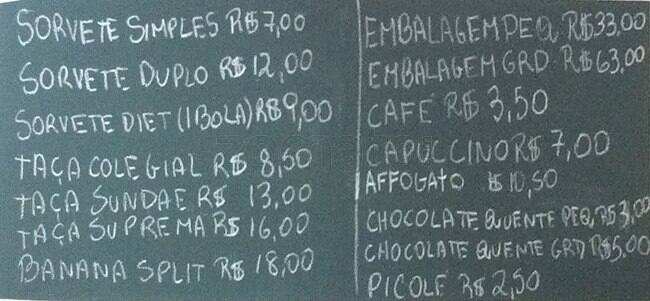 SORVETE SIMPLES R$7,00
SORVETE DUPLO R$ 12,00
SORVETE DIET (1 BOLA) R$9,00
TAÇA COLEGIAL R$ 8,50
TAÇA SUNDAE R$ 13,00
TAÇA SUPREMA R$ 16,00
BANANA SPLIT R$ 18,00
EMBALAGEM PEQ R$33,00
EMBALAGEM GRD R$63,00
CAFÉ R$ 3,50
CAPUCCINO R$ 7,00
AFFOGATO R$ 10,50
CHOCOLATE QUENTE PEQ. R$3,00
CHOCOLATE QUENTE GRD R$5,00
PICOLE R$ 2,50